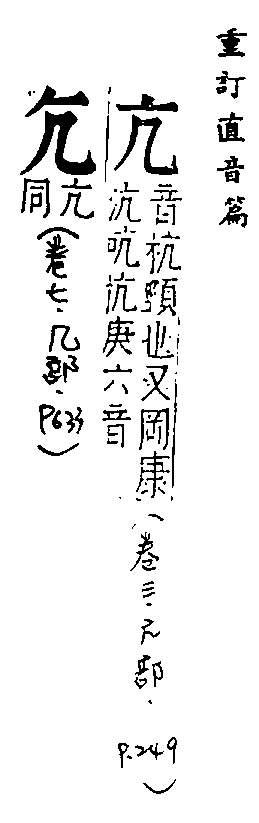 重訂直音篇
亢
音杭頸也又岡康
沆吭抗庚六音
(卷三·亢部·P.249)
亢
同
(卷七·几部·P633)